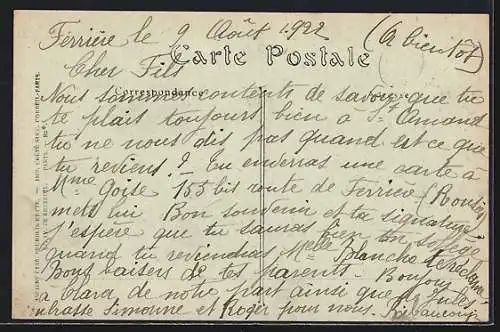 Ferrière le 9 Août 1922
(A bientôt)
Carte Postale
Cher Fils
Correspondance
Nous sommes contents de savoir que tu
te plais toujours bien à St Amand
tu ne nous dis pas quand est ce que
tu reviens ? – tu enverras une carte à
Mme Goise 155 bis route de Ferrière
mets lui Bon souvenir et ta signature
j'espère que tu sauras bien ton solfège
quand tu reviendras Melle Blanche te réclame
Bons baisers de tes parents. Bonjour
à Clara de notre part ainsi que Jules
embrasse Simonne et Roger pour nous.